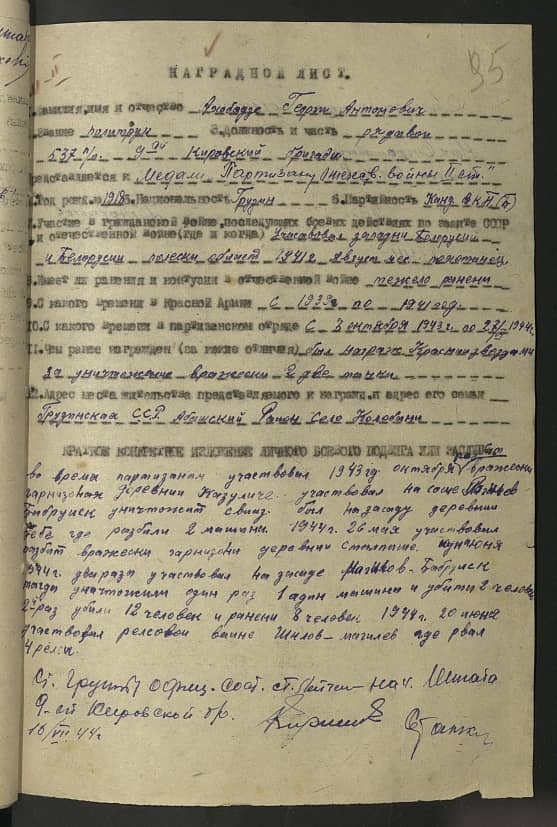 95
НАГРАДНОЙ ЛИСТ.
1. Фамилия, имя и отчество Георги Антонович
2. Звание политрук 3. Должность и часть рядавои
537 п/о. 9 ой Кировский бригады
Представляется к Медали "Партизану Отечеств. войны II ст."
4. Год рожд. 1918 5. Национальность Грузин 6. Партийность Канд. ВКП(б)
7. Участие в гражданской войне, последующих боевых действиях по защите СССР
и отечественной войне (где и когда) Участвовал западни Белорусии
и Белорусии полески област 1941 г. август мес.
8. Имеет ли ранения и контузии в отечественной войне тежело ранени
9. С какого времени в Красной Армии с 1939г по 1941 год.
10. С какого времени в партизанском отряде с 3 октября 1943 г. по
11. Чем ранее награжден (за какие отличия) был награж Красни звездами
за уничтожение вражески 2 две танки
12. Адрес места жительства представляемого к награжд. и адрес его семьи
Грузинская ССР Абашский Район Село Колобани
КРАТКОЕ КОНКРЕТНОЕ ИЗЛОЖЕНИЕ ЛИЧНОГО БОЕВОГО ПОДВИГА ИЛИ ЗАСЛУГ
во время партизании участвовал 1943 год октября вражески
гарнизонах деревнии Казуличе участвовал на
Бабруиск уничтожит связ. был на засаду деревнии
где разбили 2 машини. 1944 г. 26 мая участвовал
разбит вражески гарнизони деревнии июня
1944 г. два раза участвовал на засаде Магилов-Бабруиск
тогда уничтожили один раз 1 адин машини и убити 2 человек
2 раз убили 12 человек и ранени 8 человек 1944 г. 20 июня
участвовал релсовои вайне Шклов-магилев где рвал
4 релси.
Ст. Группы Офиц. Сост. ст. лейтен Нач. Штаба
9-ой Кировской бр.
16/VII 44 г.